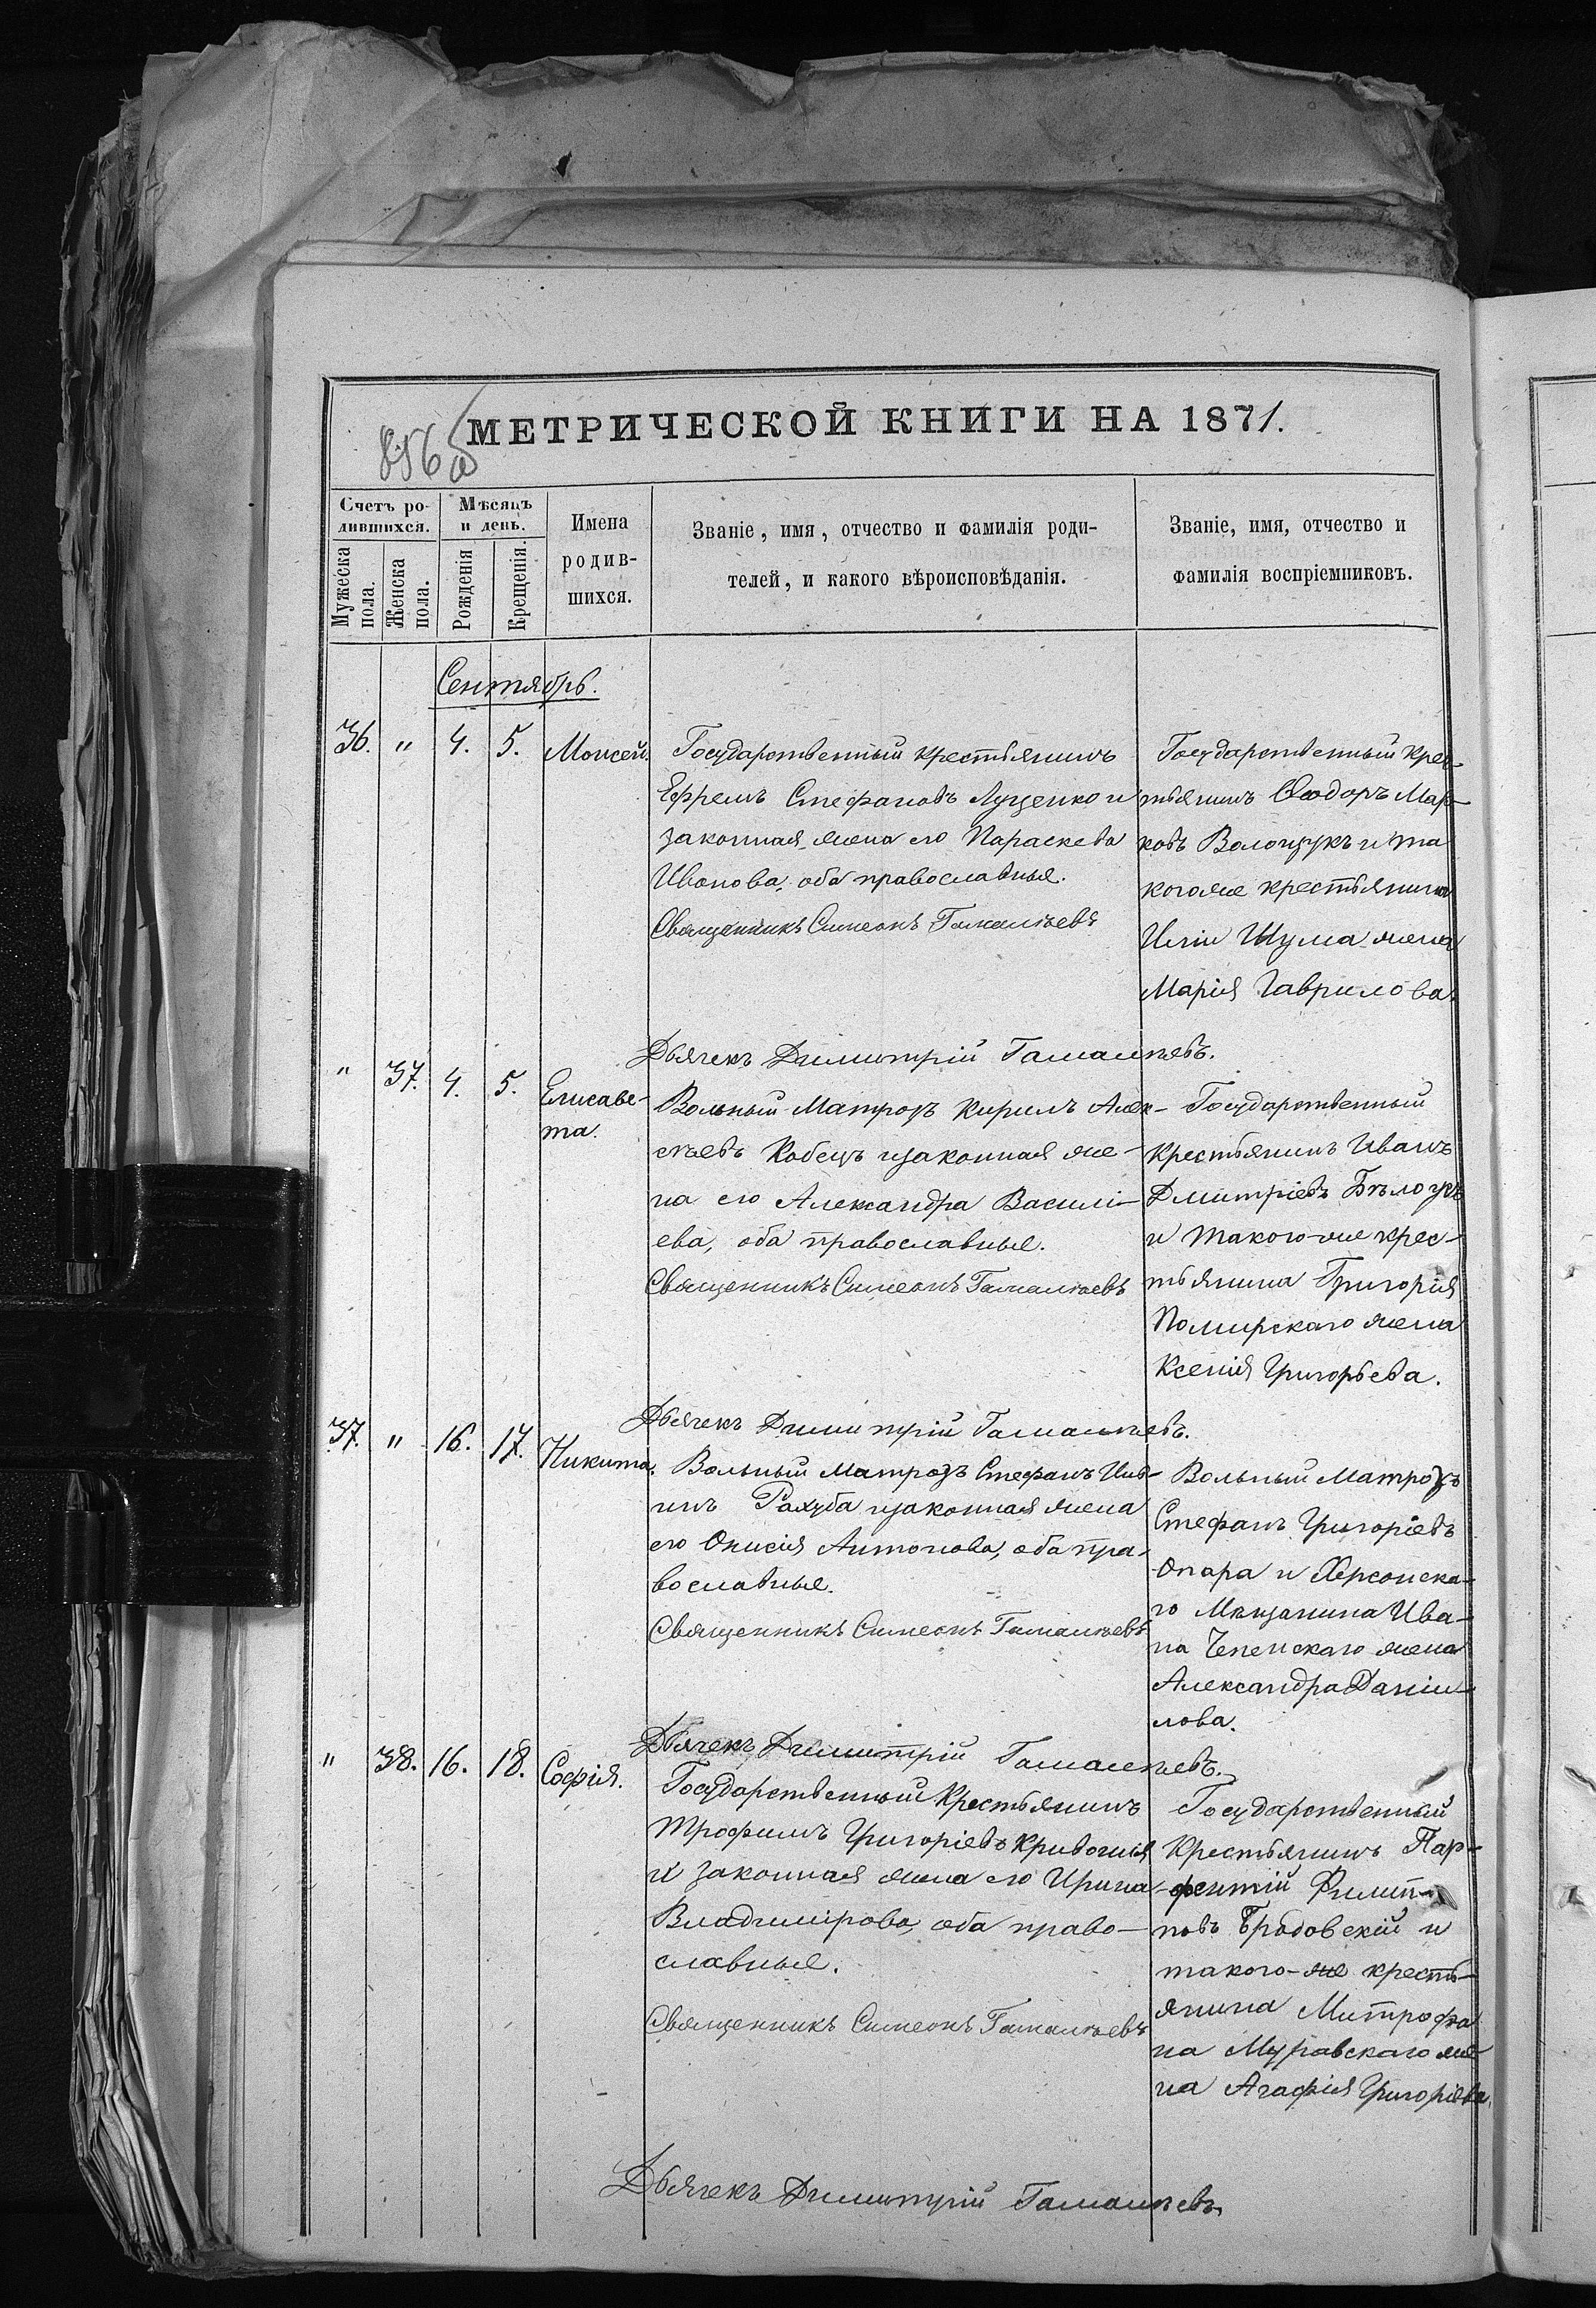 МЕТРИЧЕСКОЙ КНИГИ НА 1871.
Счетъ ро-
дившихся.
Мужеска пола.
Женска пола.
Мѣсяцъ
и день.
Рожденія
Крещенія.
Имена
родив-
шихся.
Званіе, имя, отчество и фамилія роди-
телей, и какого вѣроисповѣданія.
Званіе, имя, отчество и
фамилія воспріемниковъ.
Сентябрь.
36. " 4. 5. Моисей.
Государственный крестьянинъ
Ефремъ Стефановъ Луценко и
законная жена его Параскева
Иванова, оба православныя.
Священникъ Симеонъ Гамалѣевъ
Государственный крес-
тьянинъ Ѳеодоръ Мар-
ковъ Волощукъ и та
когоже крестьянина
Иліи Шума жена
Марія Гаврилова.
Дьячекъ Димитрій Гамалѣевъ.
" 37. 4. 5. Елисаве-
та.
Вольный Матрозъ Кирилъ Алек-
сѣевъ Кобецъ и законная же-
на его Александра Василі-
ева, оба православныя.
Священникъ Симеонъ Гамалѣевъ
Государственный
крестьянинъ Иванъ
Дмитріевъ Бѣлоусъ
и такого-же крес-
тьянина Григорія
Помирскаго жена
Ксенія Григорьева.
Дьячекъ Димитрій Гамалѣевъ.
37. " 16. 17. Никита.
Вольный Матрозъ Стефанъ
инъ Рахуба и законная жена
его Онисія Антонова, оба пра-
вославныя.
Священникъ Симеонъ Гамалѣевъ
Вольный Матрозъ
Стефанъ Григоріевъ
Опара и Херсонска-
го Мѣщанина Ива-
на Чепенскаго жена
Александра Даніи-
лова.
Дьячекъ Димитрій Гамалѣевъ.
" 38. 16. 18. Софія.
Государственный Крестьянинъ
Трофимъ Григоріевъ Кривошия
и законная жена его Ирина
Владимірова, оба право-
славныя.
Священникъ Симеонъ Гамалѣевъ
Государственный
Крестьянинъ Пар-
фентій Филип-
повъ Бродовскій и
такого-же кресть-
янина Митрофа
на Муравскаго же
на Агафія Григоріева.
Дьячекъ Димитрій Гамалѣевъ